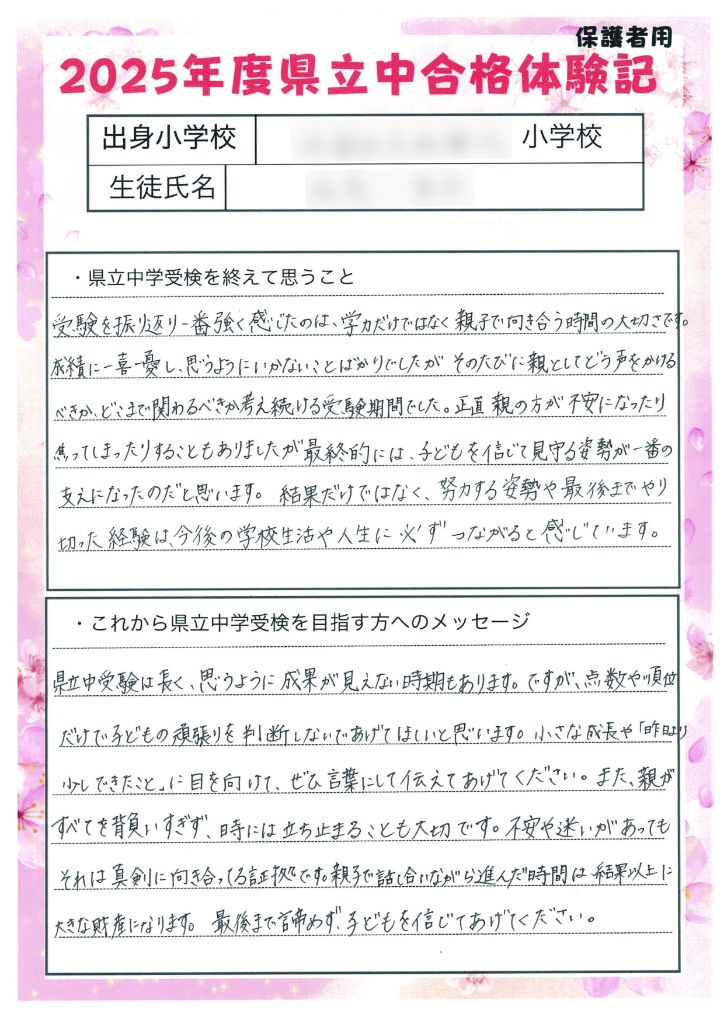 保護者用
2025年度県立中合格体験記
出身小学校 小学校
生徒氏名
・県立中学受検を終えて思うこと
受験を振り返り一番強く感じたのは、学力だけではなく親子で向き合う時間の大切さです。
成績に一喜一憂し、思うようにいかないことばかりでしたが そのたびに親としてどう声をかける
べきか、どこまで関わるべきか考え続ける受験期間でした。正直 親の方が不安になったり
焦ってしまったりすることもありましたが最終的には、子どもを信じて見守る姿勢が一番の
支えになったのだと思います。 結果だけではなく、努力する姿勢や最後までやり
切った経験は、今後の学校生活や人生に必ずつながると感じています。
・これから県立中学受検を目指す方へのメッセージ
県立中受験は長く、思うように成果が見えない時期もあります。ですが、点数や順位
だけで子どもの頑張りを判断しないであげてほしいと思います。小さな成長や「昨日より
少しできたこと」に目を向けて、ぜひ言葉にして伝えてあげてください。また、親が
すべてを背負いすぎず、時には立ち止まることも大切です。不安や迷いがあっても
それは真剣に向き合ってる証拠です。親子で話し合いながら進んだ時間は結果以上に
大きな財産になります。 最後まで諦めず、子どもを信じてあげてください。